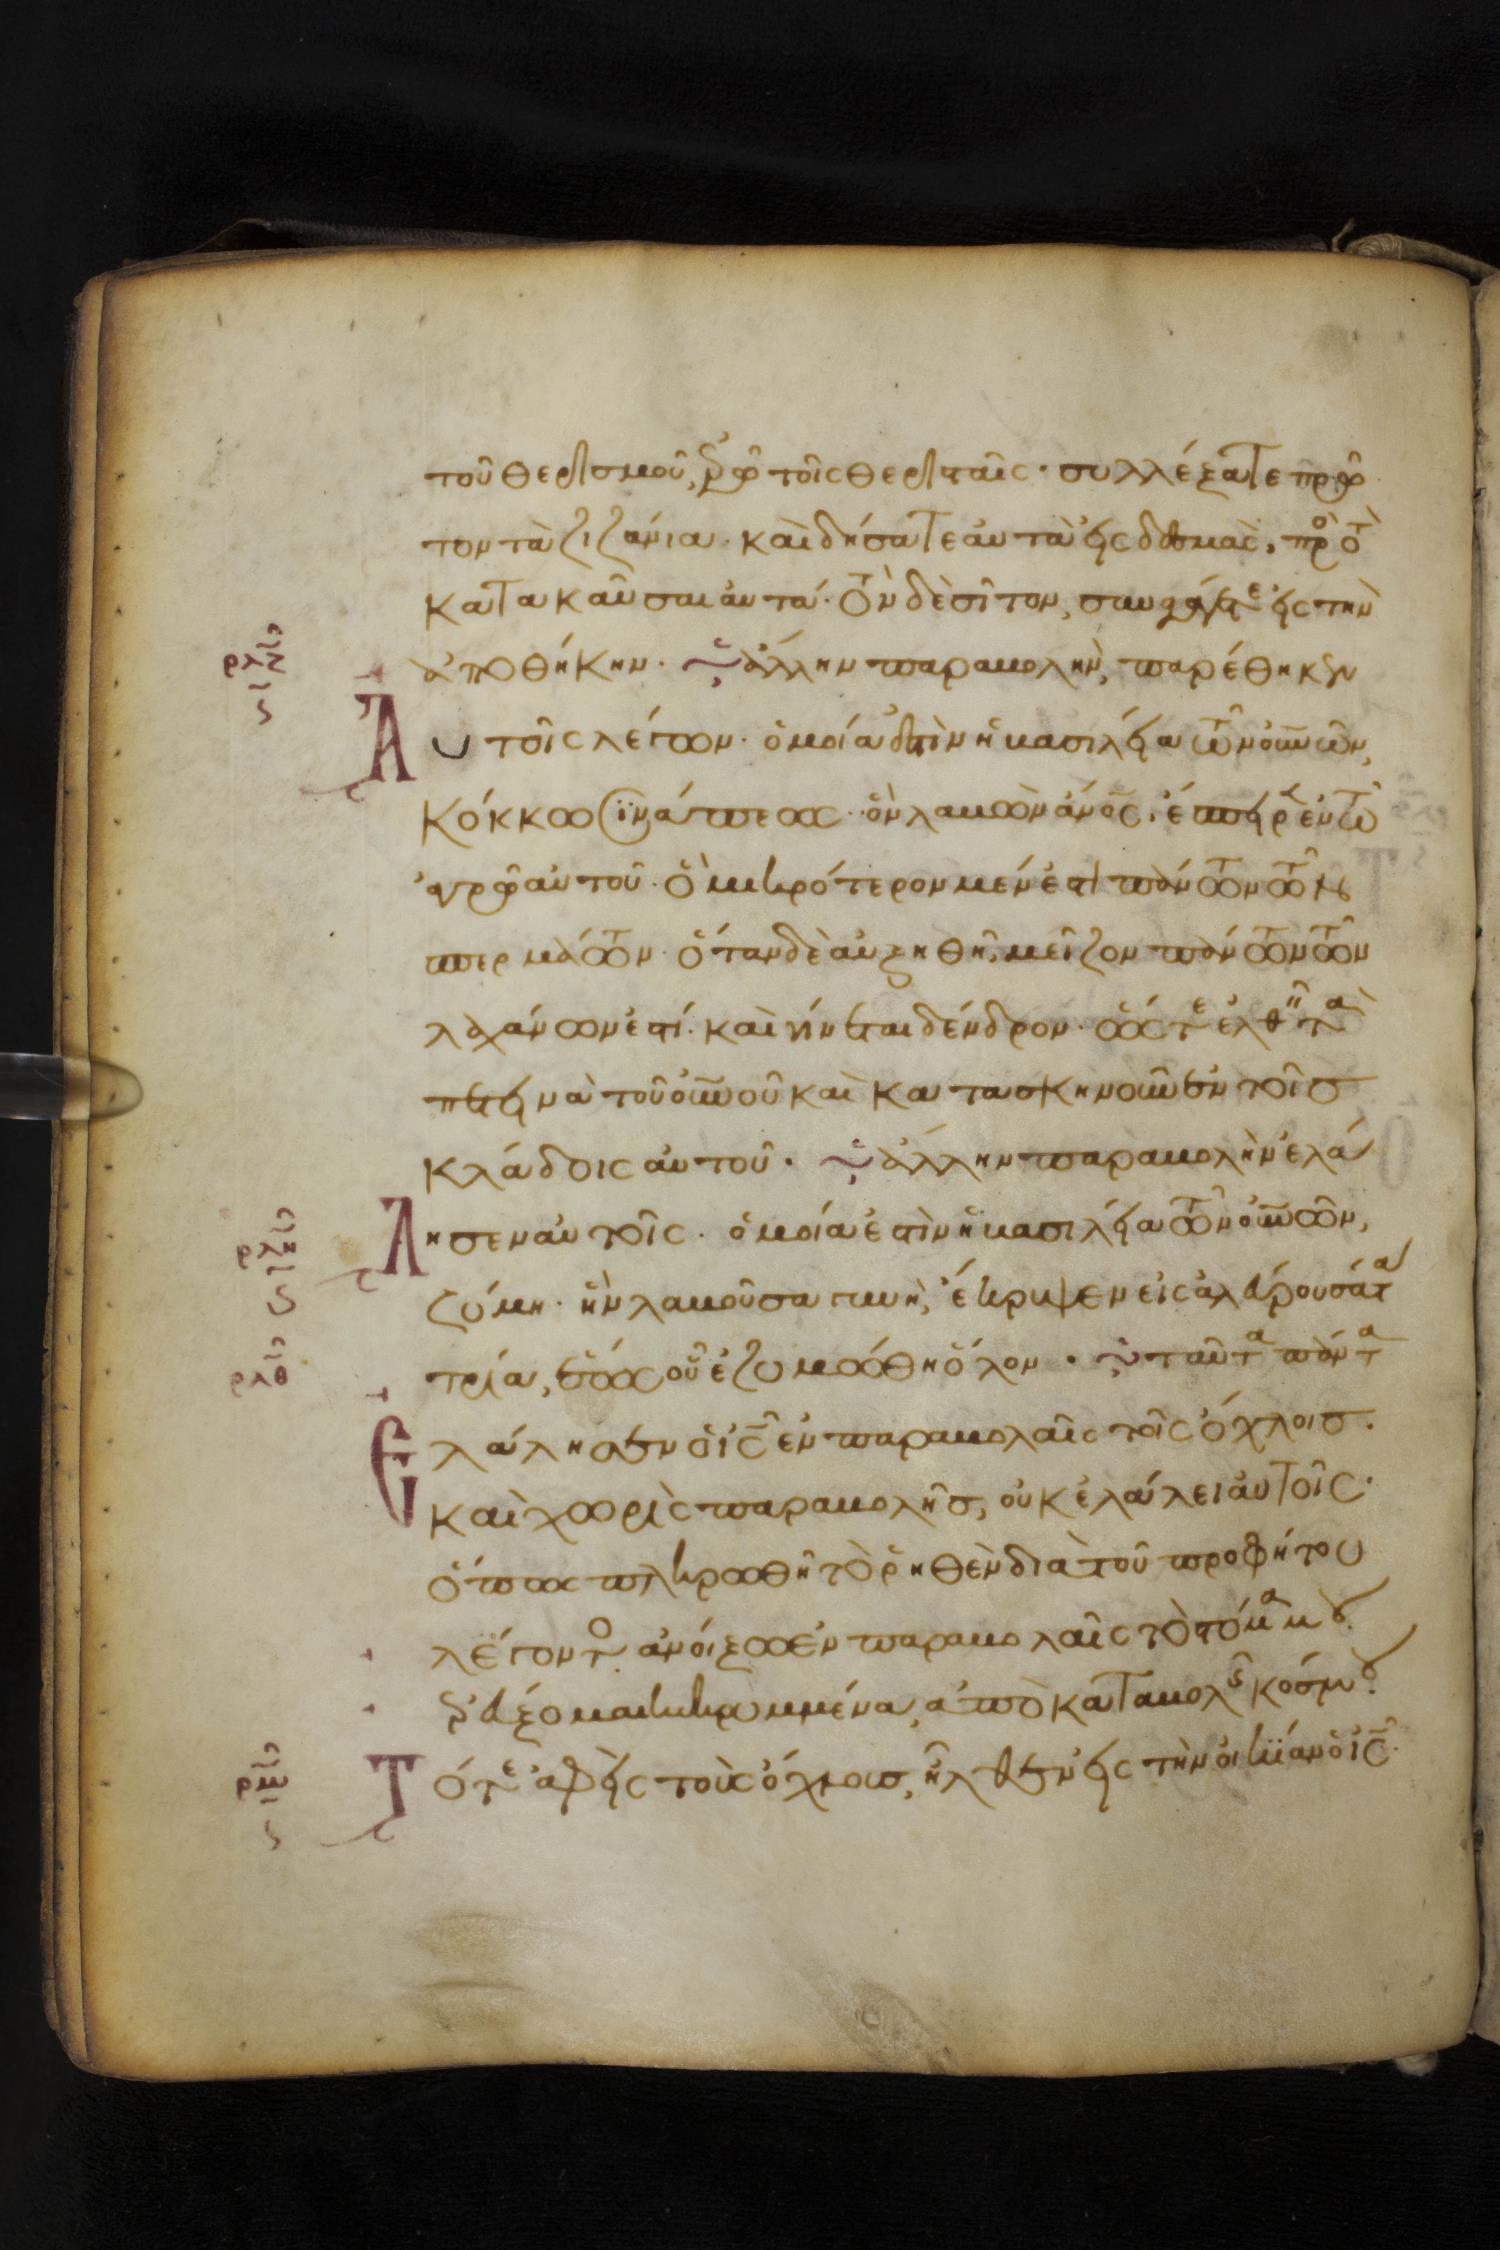 τοῦ θερισμοῦ, ἐρῶ τοῖς θερισταῖς· συλλέξατε πρῶ
τον τὰ ζιζάνια· καὶ δήσατε αὐτὰ εἰς δεσμὰς, πρὸς τὸ
κατακαῦσαι αὐτά· τὸν δὲ σῖτον, συναγάγετε εἰς τὴν
ἀποθήκην· ἄλλην παραβολὴν, παρέθηκεν
Αυτοῖς λέγων· ὁμοία ἐστὶν ἡ βασιλεία τῶν οὐνῶν,
κόκκω σινάπεως· ὃν λαβὼν ἄνος, ἔσπειρεν ἐν τῶ
ἀγρῶ αὐτοῦ· ὃ μικρότερον μέν ἐστι πάντων τῶν
σπερμάτων· ὅταν δὲ αὐξηθῆ, μεῖζον πάντων τῶν
λαχάνων ἐστί· καὶ γίνεται δένδρον· ὥστε ἐλθεῖν τὰ
πετεινὰ τοῦ οὐνοῦ καὶ κατασκηνοῦν ἐν τοῖσ
κλάδοις αὐτοῦ· ἄλλην παραβολὴν ἐλά
Λησεν αὐτοῖς· ὁμοία ἐστὶν ἡ βασιλεία τῶν οὐνῶν,
ζύμη· ἣν λαβοῦσα γυνὴ, ἔκρυψεν εἰς ἀλεύρου σάτα
τρία, ἕως οὗ ἐζυμώθη ὅλον· ταῦτα πάντα
Ελάλησεν ὁ ις ἐν παραβολαῖς τοῖς ὄχλοισ·
καὶ χωρὶς παραβολῆσ, οὐκ ἐλάλει αὐτοῖς·
ὅπως πληρωθῆ τὸ ῥηθὲν διὰ τοῦ προφήτου
λέγοντος· ἀνοίξω ἐν παραβολαῖς τὸ στόμα μου·
ἐρεύξομαι κεκρυμμένα, ἀπὸ καταβολῆς κόσμου·
Τότε ἀφεὶς τοὺς ὄχλουσ, ἦλθεν εἰς τὴν οἰκίαν ὁ ις·
ρλζ
ς
ρλη
ς
ρλθ
ρμ
ς